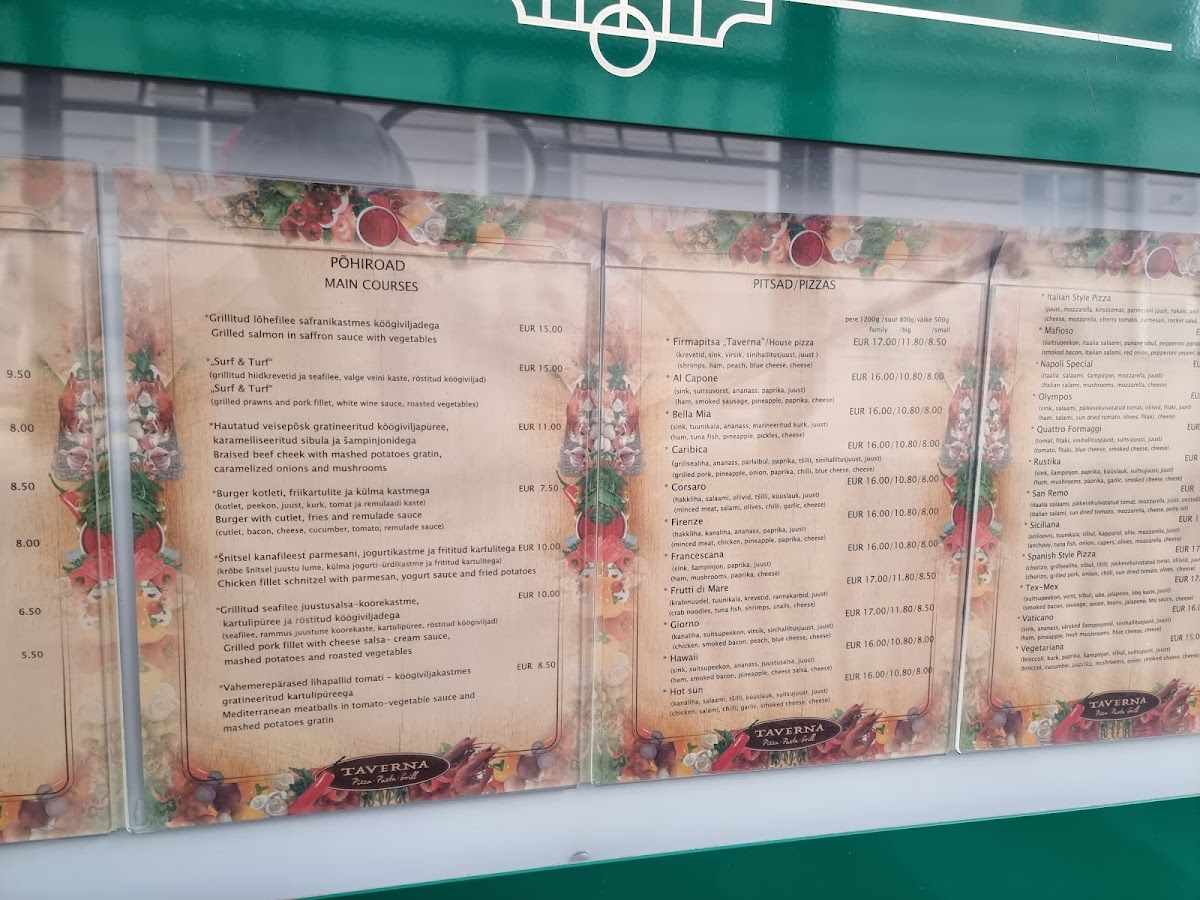 9.50
8.00
8.50
8.00
6.50
5.50
PÕHIROAD
MAIN COURSES
*Grillitud lõhefilee safranikastmes köögiviljadega EUR 15.00
Grilled salmon in saffron sauce with vegetables
*„Surf & Turf“ EUR 15.00
(grillitud hiidkrevetid ja seafilee, valge veini kaste, röstitud köögiviljad)
„Surf & Turf“
(grilled prawns and pork fillet, white wine sauce, roasted vegetables)
*Hautatud veisepõsk gratineeritud köögiviljapüree, EUR 11.00
karamelliseeritud sibula ja šampinjonidega
Braised beef cheek with mashed potatoes gratin,
caramelized onions and mushrooms
*Burger kotleti, friikartulite ja külma kastmega EUR 7.50
(kotlet, peekon, juust, kurk, tomat ja remulaadi kaste)
Burger with cutlet, fries and remulade sauce
(cutlet, bacon, cheese, cucumber, tomato, remulade sauce)
*Šnitsel kanafileest parmesani, jogurtikastme ja frititud kartulitega EUR 10.00
(krõbe šnitsel juustu lume, külma jogurti-ürdikastme ja frititud kartulitega)
Chicken fillet schnitzel with parmesan, yogurt sauce and fried potatoes
*Grillitud seafilee juustusalsa-koorekastme, EUR 10.00
kartulipüree ja röstitud köögiviljadega
(seafilee, rammus juustune koorekaste, kartulipüree, röstitud köögiviljad)
Grilled pork fillet with cheese salsa- cream sauce,
mashed potatoes and roasted vegetables
*Vahemerepärased lihapallid tomati - köögiviljakastmes EUR 8.50
gratineeritud kartulipüreega
Mediterranean meatballs in tomato-vegetable sauce and
mashed potatoes gratin
TAVERNA
Pizza·Pasta·Grill
PITSAD/PIZZAS
pere 1200g /suur 800g/väike 500g
family /big /small
* Firmapitsa „Taverna“/House pizza EUR 17.00/11.80/8.50
(krevetid, sink, virsik, sinihallitusjuust, juust )
(shrimps, ham, peach, blue cheese, cheese)
* Al Capone EUR 16.00/10.80/8.00
(sink, suitsuvorst, ananass, paprika, juust)
(ham, smoked sausage, pineapple, paprika, cheese)
* Bella Mia EUR 16.00/10.80/8.00
(sink, tuunikala, ananass, marineeritud kurk, juust)
(ham, tuna fish, pineapple, pickles, cheese)
* Caribica EUR 16.00/10.80/8.00
(grillsealiha, ananass, pärlsibul, paprika, tšilli, sinihallitusjuust, juust)
(grilled pork, pineapple, onion, paprika, chilli, blue cheese, cheese)
* Corsaro EUR 16.00/10.80/8.00
(hakkliha, salaami, oliivid, tšilli, küüslauk, juust)
(minced meat, salami, olives, chilli, garlic, cheese)
* Firenze EUR 16.00/10.80/8.00
(hakkliha, kanaliha, ananass, paprika, juust)
(minced meat, chicken, pineapple, paprika, cheese)
* Francescana EUR 16.00/10.80/8.00
(sink, šampinjon, paprika, juust)
(ham, mushrooms, paprika, cheese)
* Frutti di Mare EUR 17.00/11.80/8.50
(krabinuudel, tuunikala, krevetid, rannakarbid, juust)
(crab noodles, tuna fish, shrimps, snails, cheese)
* Giorno EUR 17.00/11.80/8.50
(kanaliha, suitsupeekon, virsik, sinihallitusjuust, juust)
(chicken, smoked bacon, peach, blue cheese, cheese)
* Hawaii EUR 16.00/10.80/8.00
(sink, suitsupeekon, ananass, juustusalsa, juust)
(ham, smoked bacon, pineapple, cheese salsa, cheese)
* Hot sun EUR 16.00/10.80/8.00
(kanaliha, salaami, tšilli, küüslauk, suitsujuust, juust)
(chicken, salami, chilli, garlic, smoked cheese, cheese)
TAVERNA
Pizza·Pasta·Grill
* Italian Style Pizza
(juust, mozzarella, kirsstomat, parmesani juust, rukola,
(cheese, mozzarella, cherry tomato, parmesan, rocket salad,
* Mafioso EUR
(suitsupeekon, itaalia salaami, punane sibul, pepperoni
(smoked bacon, Italian salami, red onion, pepperoni pepper,
* Napoli Special EUR
(itaalia salaami, šampinjon, mozzarella, juust)
(Italian salami, mushrooms, mozzarella, cheese)
* Olympos EUR
(sink, salaami, päikesekuivatatud tomat, oliivid, fitaki, juust)
(ham, salami, sun dried tomato, olives, fitaki, cheese)
* Quattro Formaggi EUR
(tomat, fitaki, sinihallitusjuust, suitsujuust, juust)
(tomato, fitaki, blue cheese, smoked cheese, cheese)
* Rustika EUR
(sink, šampinjon, paprika, küüslauk, suitsujuust, juust)
(ham, mushrooms, paprika, garlic, smoked cheese, cheese)
* San Remo EUR
(itaalia salaami, päikesekuivatatud tomat, mozzarella, juust,
(Italian salami, sun dried tomato, mozzarella, cheese, pesto oil)
* Siciliana EUR 1
(anšoovis, tuunikala, sibul, kapparid, oliiv, mozzarella, juust)
(anchovy, tuna fish, onion, capers, olives, mozzarella, cheese)
* Spanish Style Pizza EUR 17
(chorizo, grillsealiha, sibul, tšilli, päikesekuivatatud tomat, oliivid, juust)
(chorizo, grilled pork, onion, chilli, sun dried tomato, olives, cheese)
* Tex-Mex EUR 17
(suitsupeekon, vorst, sibul, uba, jalapeno, bbq kaste, juust)
(smoked bacon, sausage, onion, beans, jalapeno, bbc sauce, cheese)
* Vaticano EUR 16.
(sink, ananass, värsked šampinjonid, sinihallitusjuust, juust)
(ham, pineapple, fresh mushrooms, blue cheese, cheese)
* Vegetariana EUR 15.0
(broccoli, kurk, paprika, šampinjon, sibul, suitsujuust, juust)
(broccoli, cucumber, paprika, mushrooms, onion, smoked cheese, cheese)
TAVERNA
Pizza·Pasta·Grill